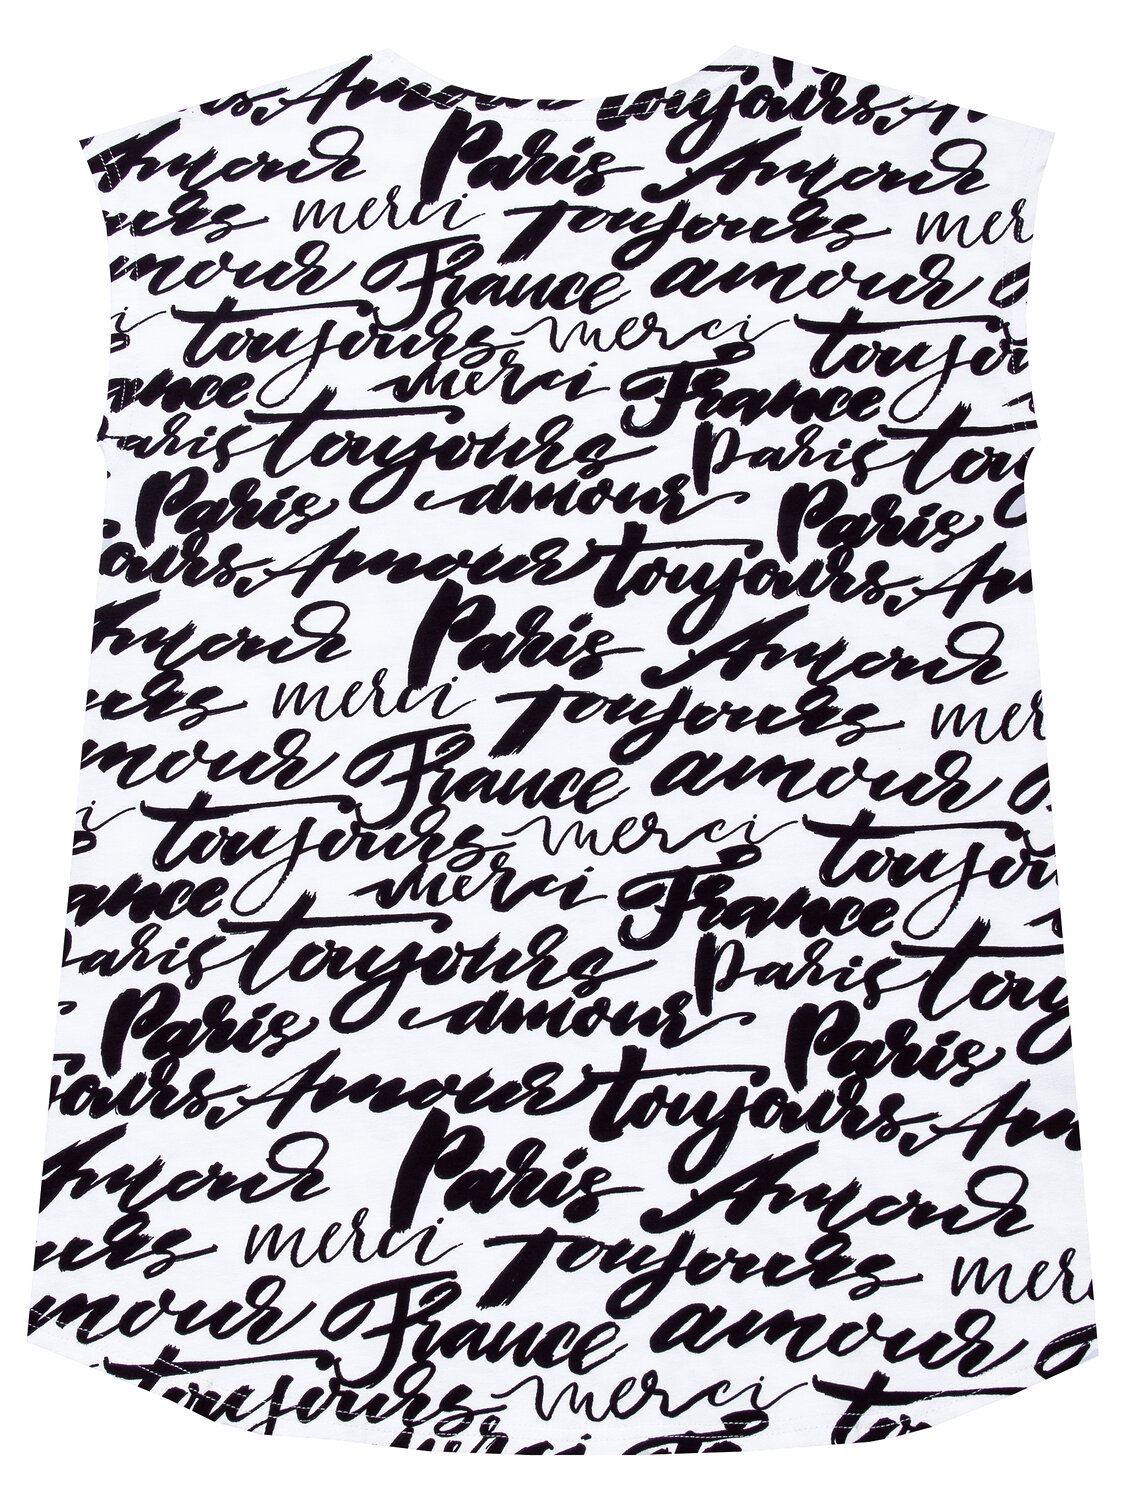 Amour toujours, A
Amour Paris Amour
merci Toujours mer
mour France amour
toujours, merci toujou
ance merci France
aris toujours Paris tou
Paris amour Paris
ours, Amour toujours, Am
Amour Paris Amour
merci Toujours mer
mour France amour
toujours, merci toujou
ance merci France
Paris toujours Paris touj
Paris amour Paris
jours, Amour toujours, Am
Amour Paris Amour
merci Toujours merci
mour France amour
toujours merci
merci